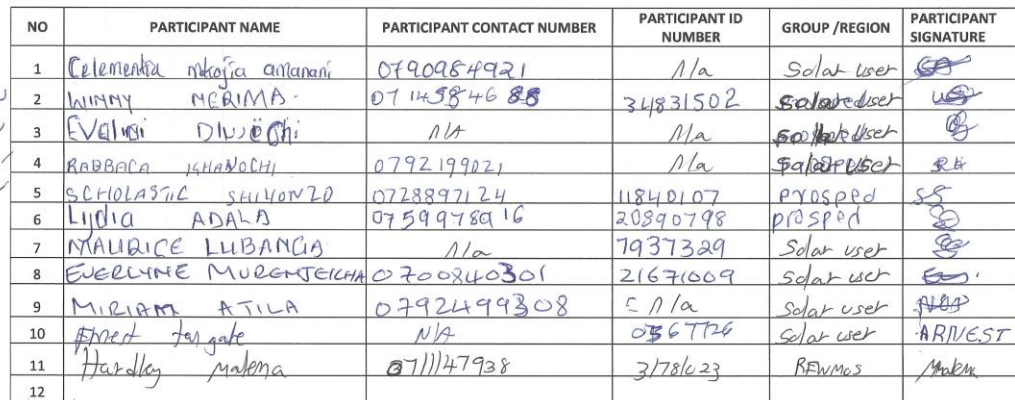 NO PARTICIPANT NAME PARTICIPANT CONTACT NUMBER PARTICIPANT ID NUMBER GROUP /REGION PARTICIPANT SIGNATURE
1 Celementia mkojia amanani 0790984921 N/a Solar user
2 WINNY MERIMA 34831502 user
3 N/A N/a user
4 RABBACA 0792199021 N/a user
5 SCHOLASTIC SHIYONZO 0728897124 11840107 prosped SS
6 Lydia ADALA 0759978916 20890798 prosped
7 MAURICE LUBANGA N/a 7937329 Solar user
8 EVERLYNE 0700840301 21671009 Solar user
9 MIRIAM ATILA 0792499308 N/a Solar user
10 N/A Solar user ARNEST
11 Hardley Malema REWMOS
12